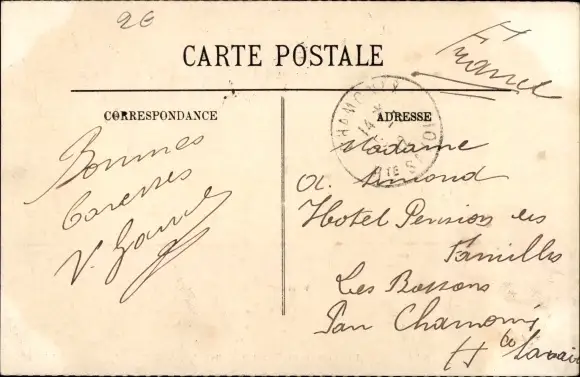 2€
CARTE POSTALE
France
CORRESPONDANCE
ADRESSE
CHAMONIX
14
Hte SAVOIE
Bonnes
Caresses
V.
Madame
A. Simond
Hotel Pension des
Familles
Les Bossons
Par Chamonix
Hte Savoie